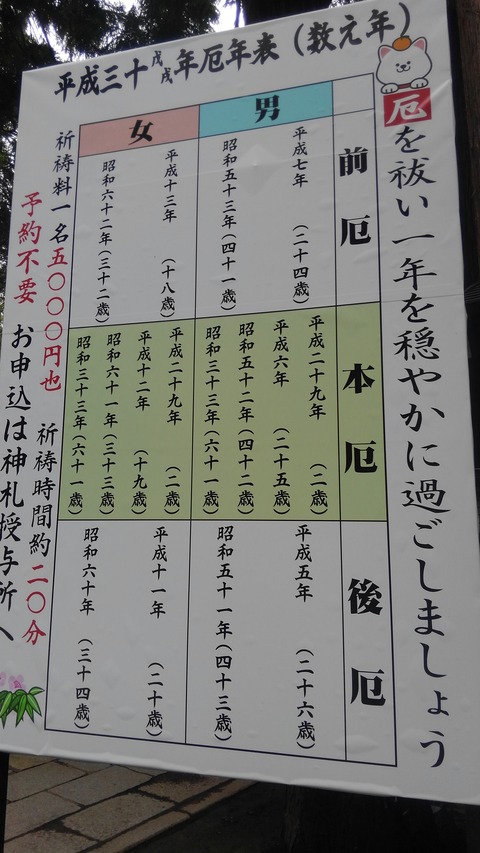 平成三十戊戌年厄年表（数え年）
厄を祓い一年を穏やかに過ごしましょう
前厄
本厄
後厄
男
平成七年（二十四歳）
昭和五十三年（四十一歳）
平成二十九年（二歳）
平成六年（二十五歳）
昭和五十二年（四十二歳）
昭和三十三年（六十一歳）
平成五年（二十六歳）
昭和五十一年（四十三歳）
女
平成十三年（十八歳）
昭和六十二年（三十二歳）
平成二十九年（二歳）
平成十二年（十九歳）
昭和六十一年（三十三歳）
昭和三十三年（六十一歳）
平成十一年（二十歳）
昭和六十年（三十四歳）
祈祷料一名五〇〇〇円也
祈祷時間約二〇分
予約不要
お申込は神札授与所へ